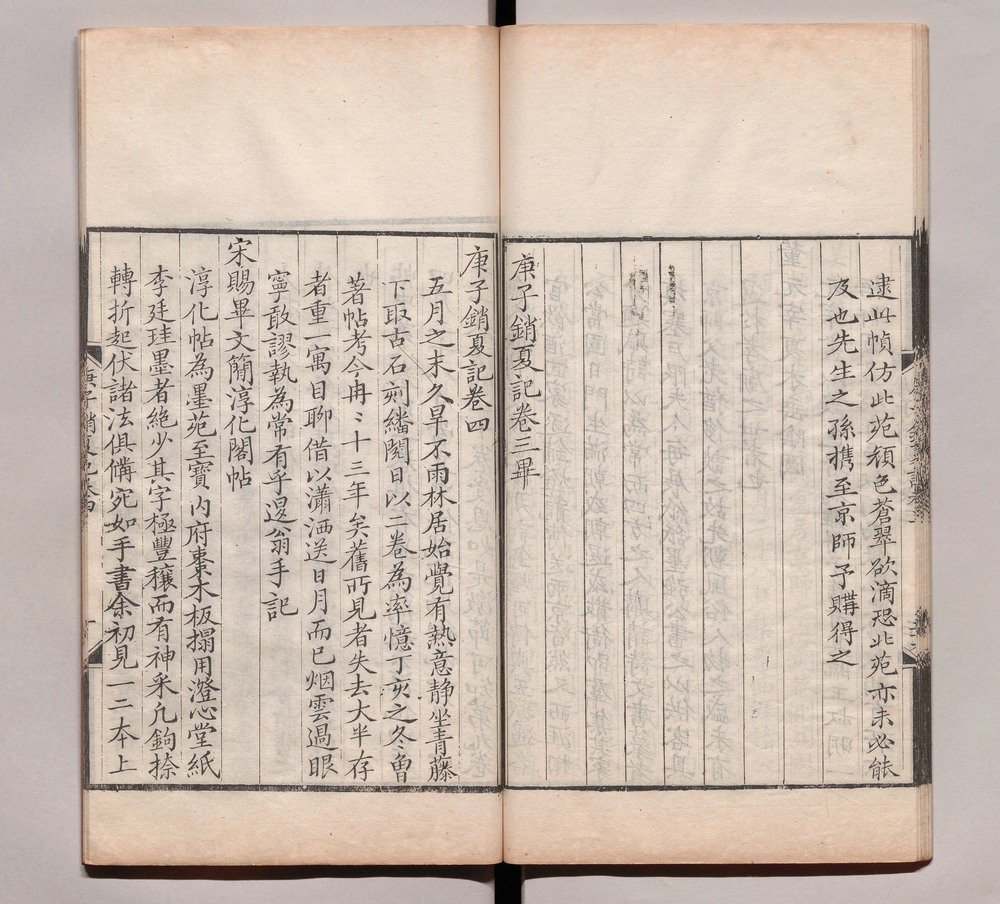 逮此幀仿北苑顏色蒼翠欲滴恐北苑亦未必能
及也先生之孫携至京師予購得之
庚子銷夏記卷三畢
庚子銷夏記卷四
五月之末久旱不雨林居始覺有熱意靜坐青藤
下取古石刻繙閱日以二卷為率憶丁亥之冬曾
著帖考今冉〻十三年矣舊所見者失去大半存
者重一寓目聊借以瀟洒送日月而已烟雲過眼
寧敢謬執為常有乎退翁手記
宋賜畢文簡淳化閣帖
淳化帖為墨苑至寶內府棗木板搨用澄心堂紙
李廷珪墨者絶少其字極豐穠而有神采凡鉤捺
轉折起伏諸法俱備宛如手書余初見一二本上
庚子銷夏記卷四